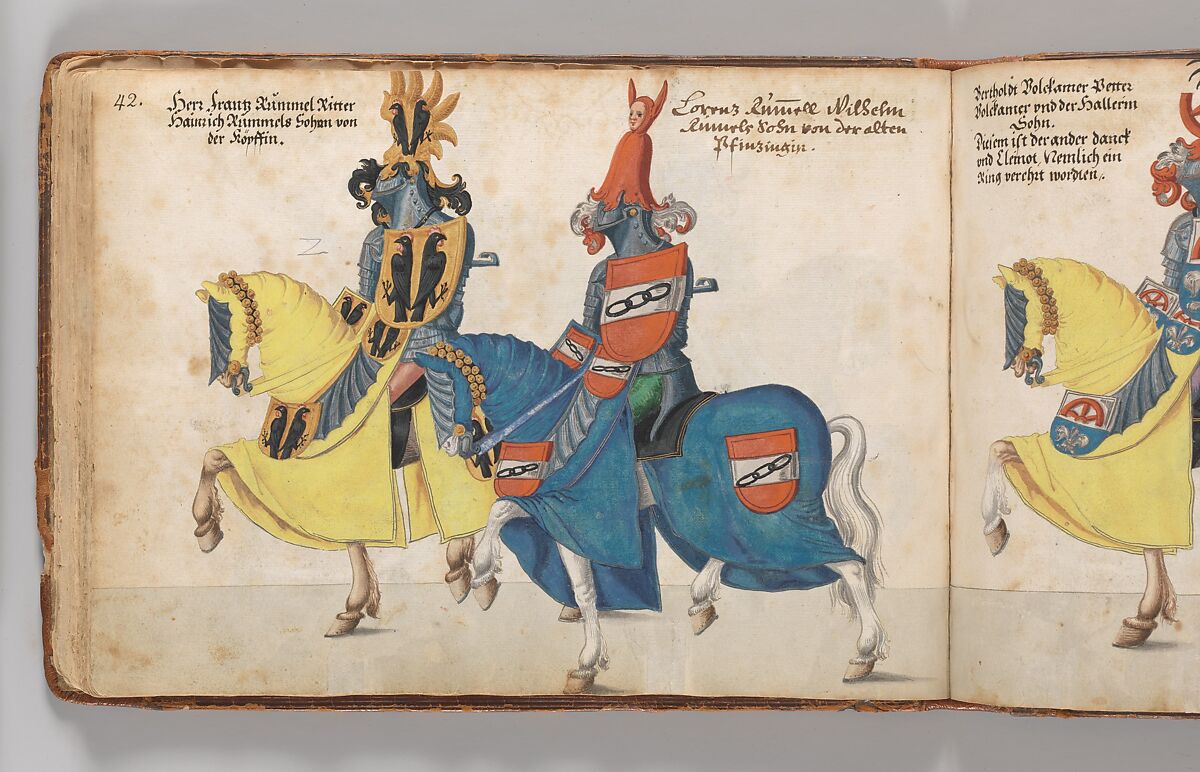 42.
Herr Frantz Rummel Ritter
Hainrich Rummels Sohan von
der Köpffin.
Lorenz Rumell Wilhelm
Rumels Sohn von der alten
Pfinzingin.
Bertholdt Volckamer Petter
Volckamer vnd der Hallerin
Sohn.
Disem ist der ander danck
vnd Cleinot, Nemlich ein
Ring verehrt wordten.